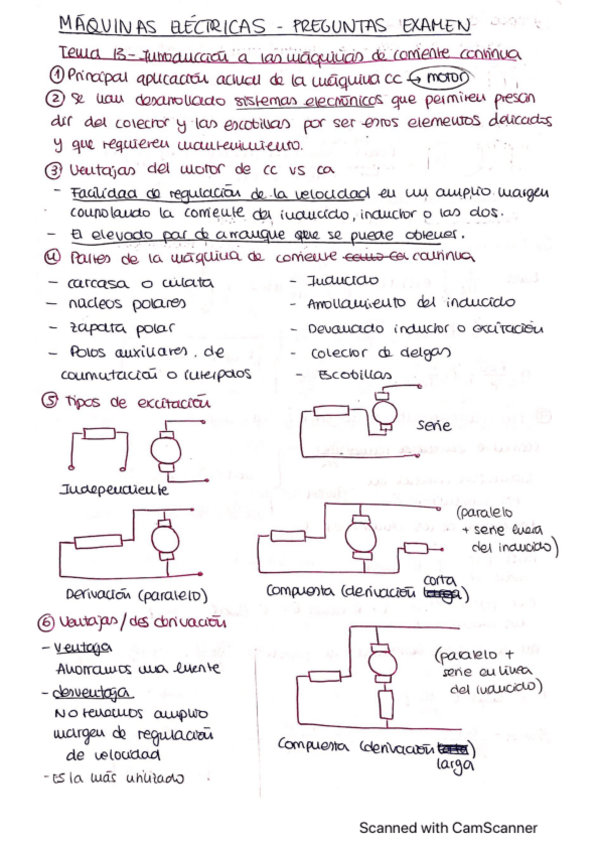 MÁQUINAS ELÉCTRICAS - PREGUNTAS EXAMEN
Tema 13 - Introducción a las máquinas de corriente continua
① Principal aplicación actual de la máquina cc → motor
② Se han desarrollado sistemas electrónicos que permiten prescin
dir del colector y las escobillas por ser estos elementos delicados
y que requieren mantenimiento.
③ Ventajas del motor de cc vs ca
- Facilidad de regulación de la velocidad en un amplio margen
controlando la corriente del inducido, inductor o las dos.
- El elevado par de arranque que se puede obtener.
④ Partes de la máquina de corriente continua
- carcasa o culata
- núcleos polares
- zapata polar
- Polos auxiliares, de
conmutación o interpolos
- Inducido
- Arrollamiento del inducido
- Devanado inductor o excitación
- Colector de delgas
- Escobillas
⑤ Tipos de excitación
Independiente
serie
Derivación (paralelo)
(paralelo
+ serie
del inducido)
Compuesta (derivación corta)
⑥ Ventajas/des derivación
- ventaja
Ahorramos una fuente
- desventaja
No tenemos amplio
margen de regulación
de velocidad
- es la más utilizado
(paralelo +
serie en línea
del inducido)
Compuesta (derivación larga)
Scanned with CamScanner